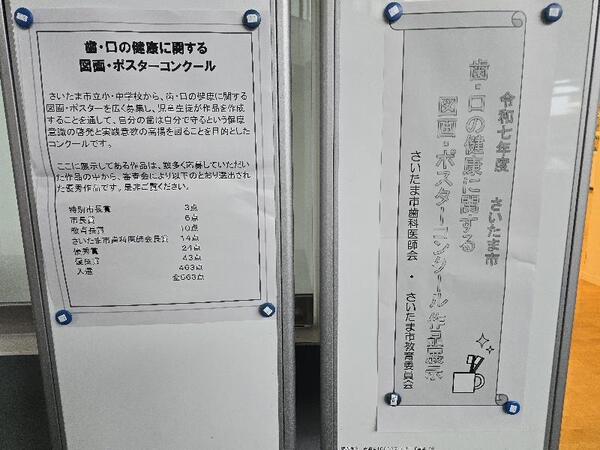 歯・口の健康に関する
図画・ポスターコンクール
さいたま市立小・中学校から、歯・口の健康に関する
図画・ポスターを広く募集し、児童生徒が作品を作成
することを通して、自分の歯は自分で守るという健康
意識の啓発と実践意欲の高揚を図ることを目的とした
コンクールです。
ここに展示してある作品は、数多く応募していただい
た作品の中から、審査会により以下のとおり選出され
た優秀作品です。是非ご覧ください。
特別市長賞 3点
市長賞 6点
教育長賞 10点
さいたま市歯科医師会長賞 14点
優秀賞 24点
43点
入選 463点
全563点
令和七年度 さいたま市
歯・口の健康に関する
図画・ポスターコンクール 作品展示
さいたま市歯科医師会 ・ さいたま市教育委員会